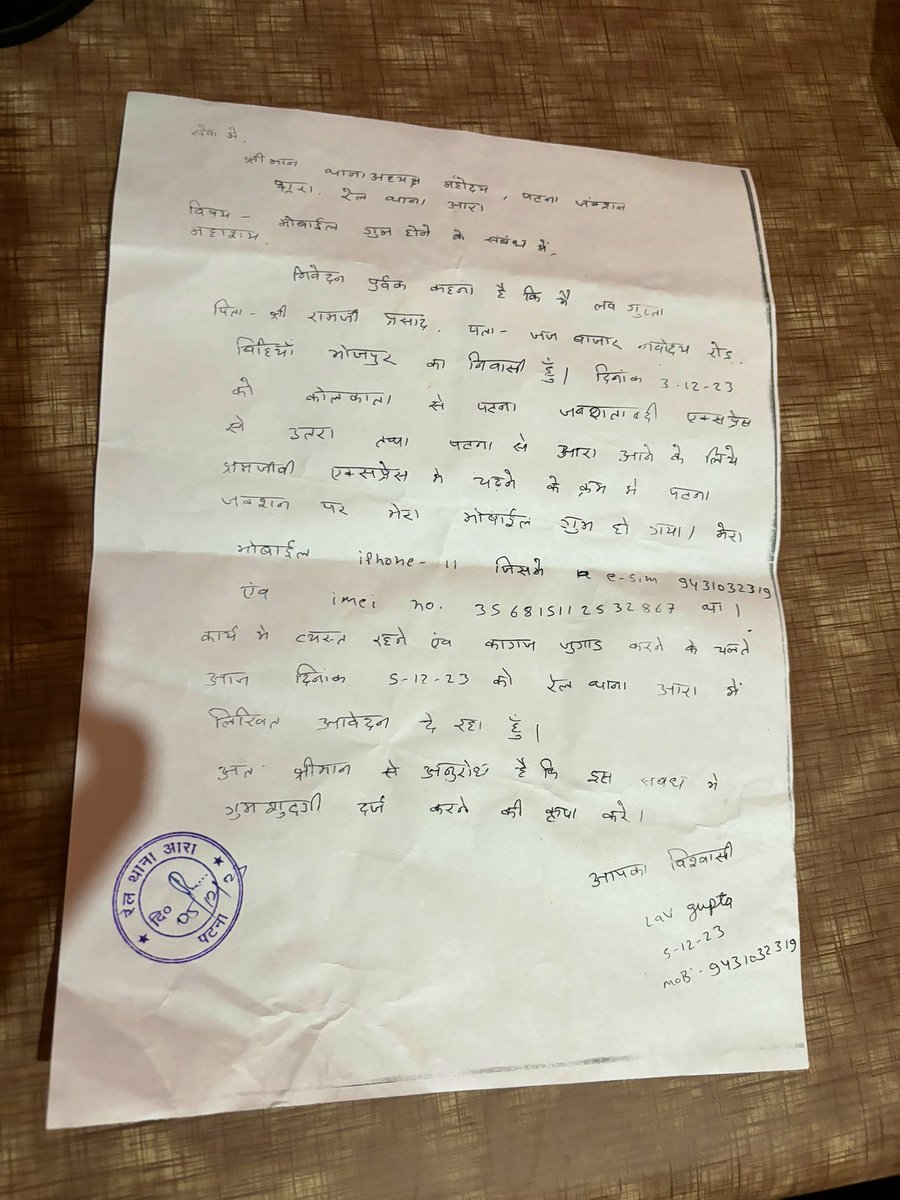 सेवा मे,
श्रीमान थाना अध्यक्ष महोदय, पटना जंक्शन
रेल थाना आरा
विषय - मोबाईल गुम होने के सबंध में,
महाशय,
निवेदन पुर्वक कहना है कि मै लव गुप्ता
पिता - श्री रामजी प्रसाद, पता - जज बाजार नवोदय रोड.
बिहियाँ भोजपुर का निवासी हुँ। दिनांक 3-12-23
को कोलकाता से पटना जनशताब्दी एक्सप्रेस
से उतरा तथा पटना से आरा आने के लिये
श्रमजीवी एक्सप्रेस मे चढ़ने के क्रम मे पटना
जंक्शन पर मेरा मोबाईल गुम हो गया। मेरा
मोबाईल iphone-11 जिसमे e-sim 9431032319
एंव imei no. 356815112532867 था।
कार्य मे व्यस्त रहने एंव कागज जुगाड करने के चलते
आज दिनांक 5-12-23 को रेल थाना आरा में
लिखित आवेदन दे रहा हुँ।
अतः श्रीमान से अनुरोध है कि इस सबंध मे
गुमशुदगी दर्ज करने की कृपा करे।
आपका विश्वासी
Lav gupta
5-12-23
moB:- 9431032319
रेल थाना आरा
दि० 05/12/2
पटना